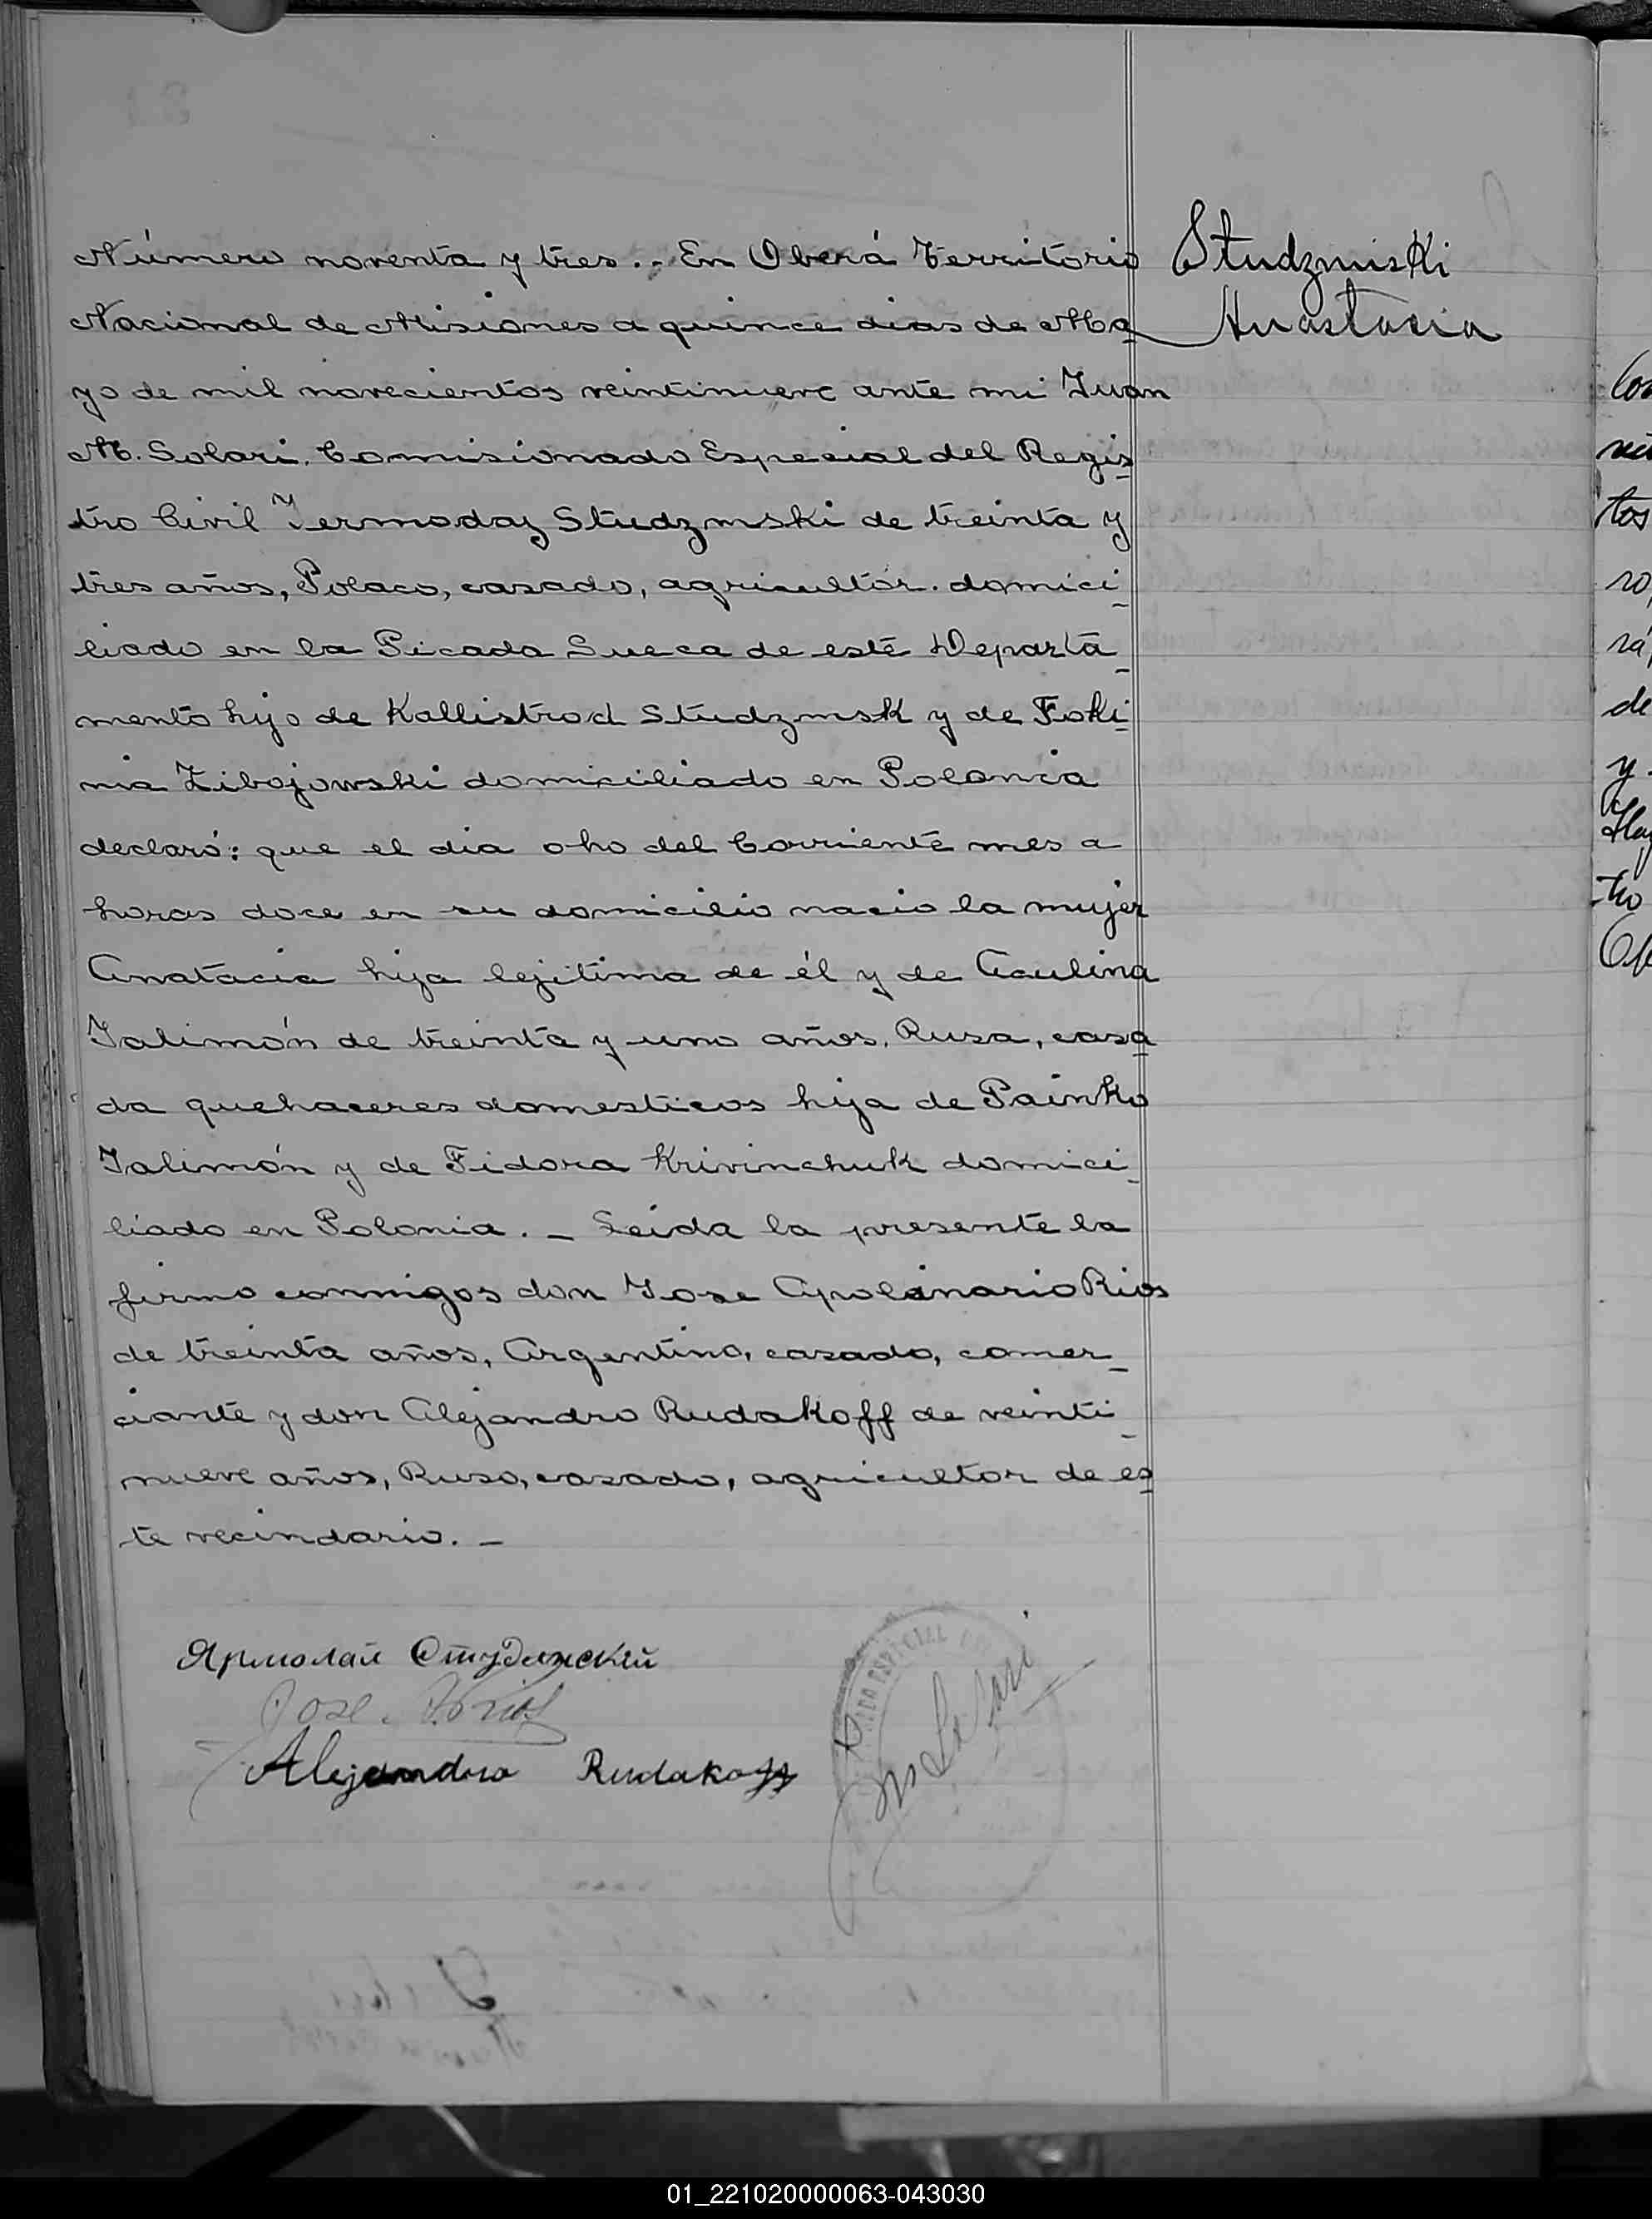 Número noventa y tres.- En Oberá Territorio
Nacional de Misiones a quince dias de Ma
yo de mil novecientos veintinueve ante mi Juan
M. Solari. Comisionado Especial del Regis
tro Civil Jermoday Studzmski de treinta y
tres años, Polaco, casado, agricultor. domici
liado en la Picada Sueca de este Departa
mento hijo de Kallistrod Studzmsk y de Foki
nia Zibojowski domiciliado en Polonia
declaró: que el dia oho del Corriente mes a
horas doce en su domicilio nacio la mujer
Anatacia hija lejitima de él y de Aculina
Jalimón de treinta y uno años, Rusa, casa
da quehaceres domesticos hija de Painko
Jalimón y de Fidora Krivinchuk domici
liado en Polonia. - Leida la presente la
firmo conmigos don Jose Apolinario Rios
de treinta años, Argentino, casado, comer
ciante y don Alejandro Rudakoff de veinti
nueve años, Ruso, casado, agricultor de es
te vecindario. -
Studzmiski
Anastacia
Ярмолай Студзинский
Jose A. Rios
Alejandro Rudakoff
ESPECIAL
Solari
01_221020000063-043030